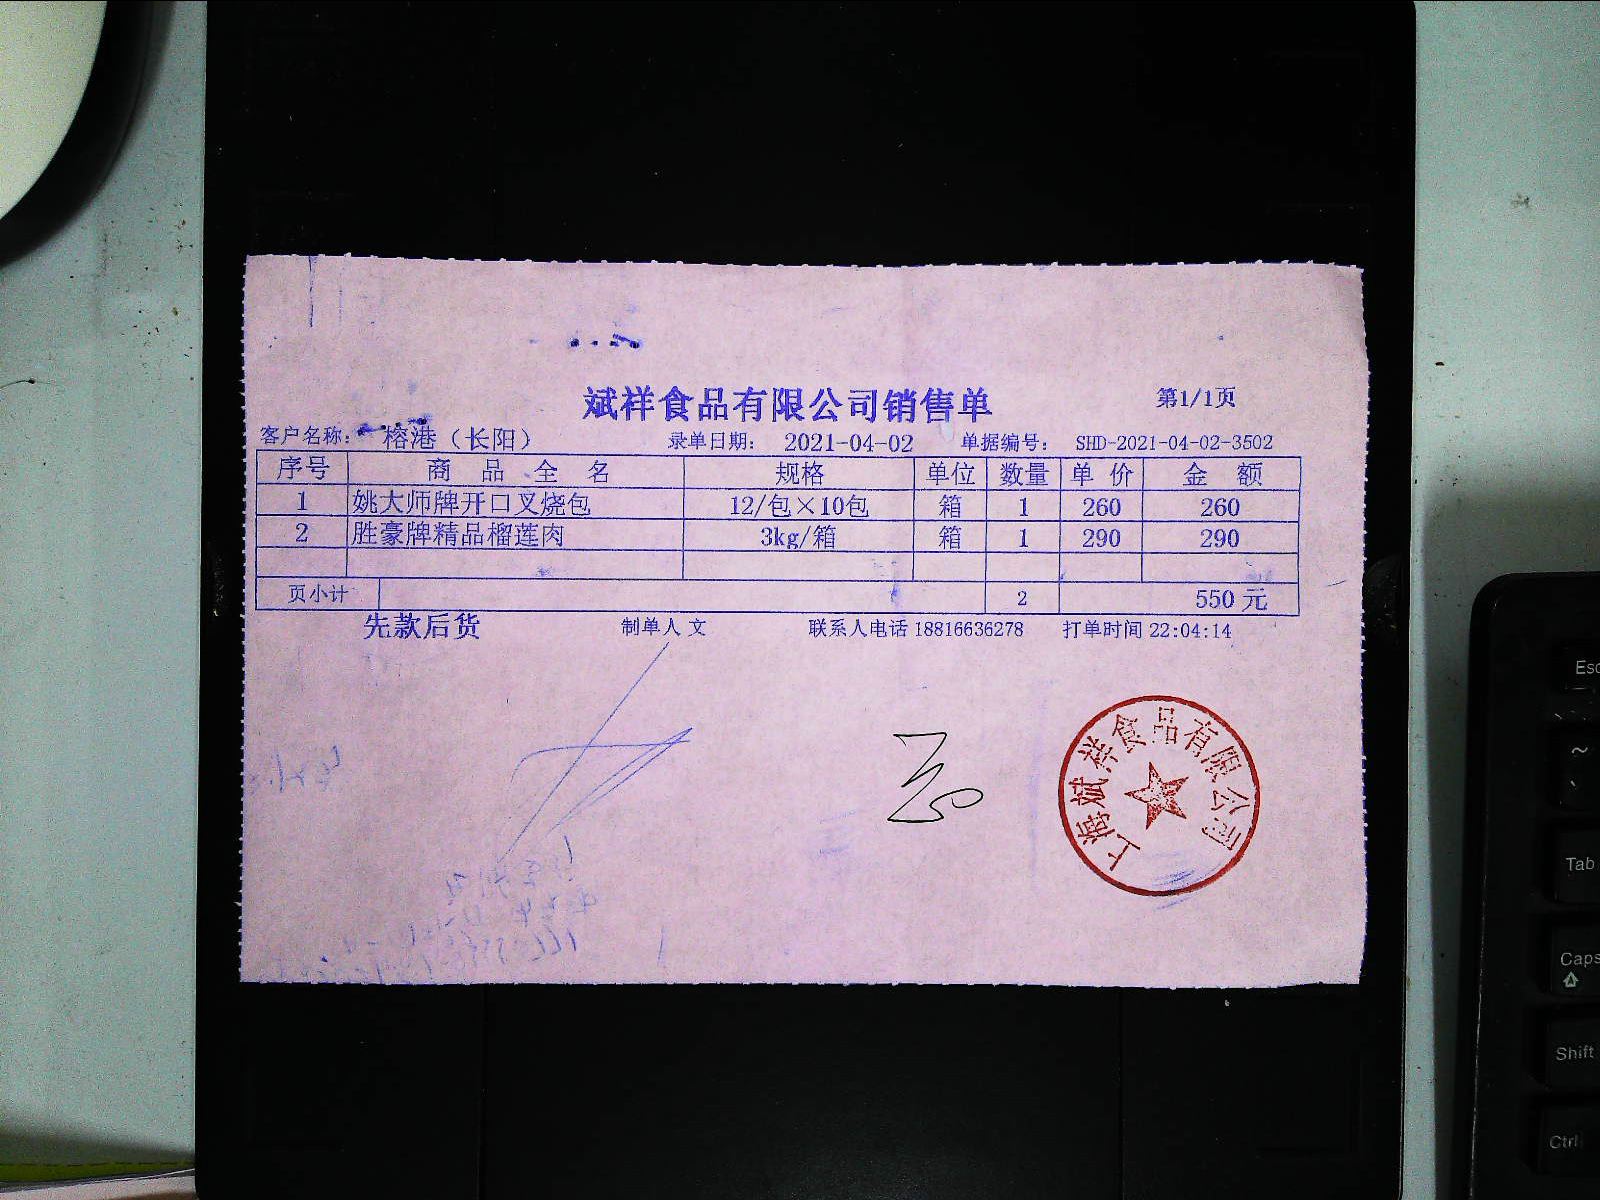 斌祥食品有限公司销售单 第1/1页
客户名称： 榕港（长阳） 录单日期： 2021-04-02 单据编号： SHD-2021-04-02-3502
序号 商品全名 规格 单位 数量 单价 金额
1 姚大师牌开口叉烧包 12/包×10包 箱 1 260 260
2 胜豪牌精品榴莲肉 3kg/箱 箱 1 290 290
页小计 2 550 元
先款后货 制单人 文 联系人电话 18816636278 打单时间 22:04:14
上海斌祥食品有限公司
Esc
~
Tab
Caps
Shift
Ctrl